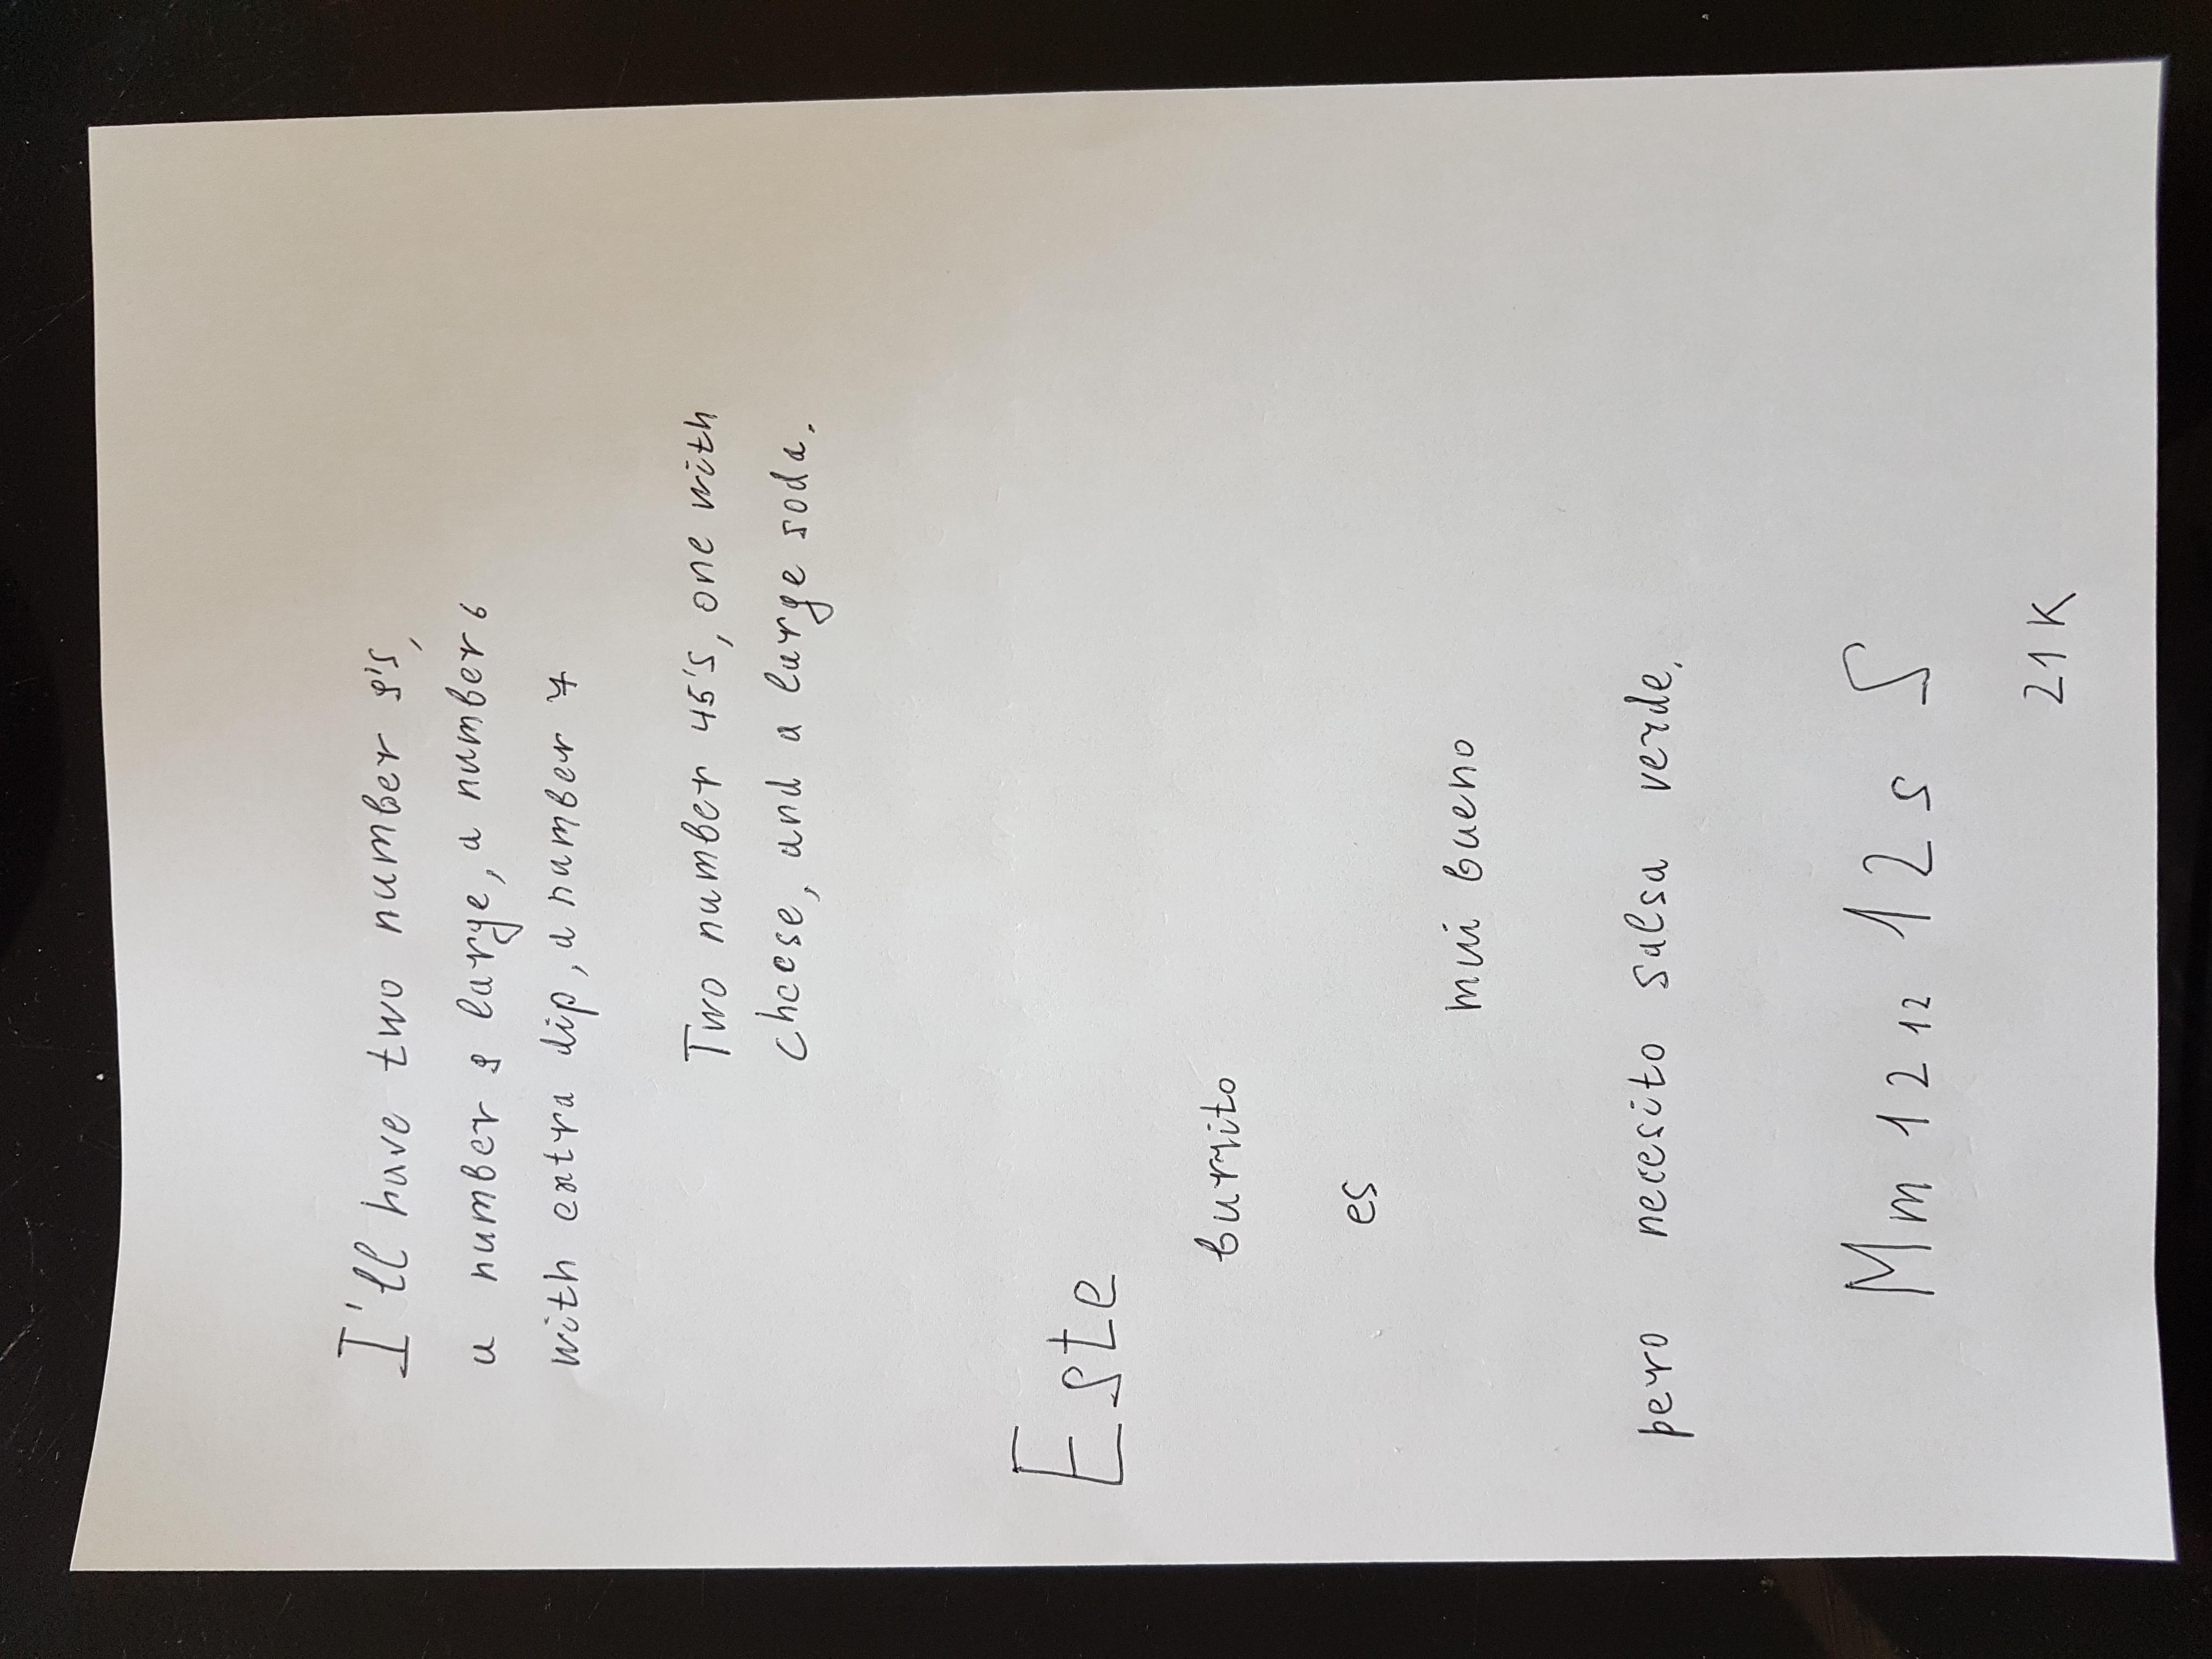 I'll have two number 9's,
a number 9 large, a number 6
with extra dip, a number 7
Two number 45's, one with
cheese, and a large soda.
Este
burrito
es
mui bueno
pero necesito salsa verde.
Mm 12 12 12 s S
21 K